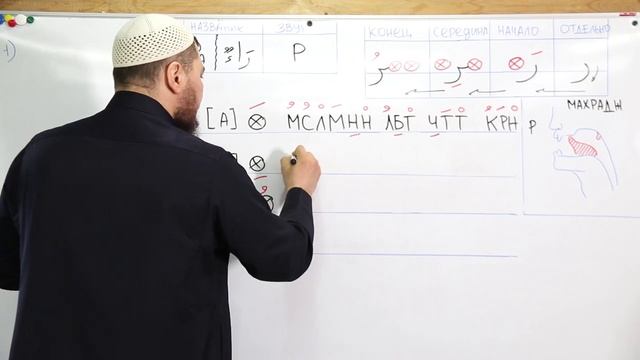 НАЗВАНИЕ ЗВУК КОНЕЦ СЕРЕДИНА НАЧАЛО ОТДЕЛЬНО
رَاءٌ Р ـر ـر رَ ر
МАХРАДЖ
[А] МСЛМНН ЛБТ ЧТТ КРН Р